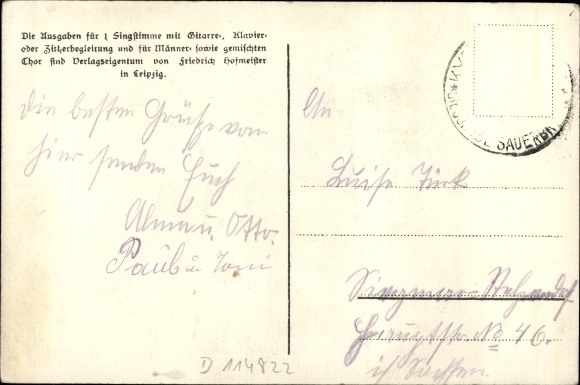 Die Ausgaben für 1 Singstimme mit Gitarre-, Klavier-
oder Zitherbegleitung und für Männer- sowie gemischten
Chor sind Verlagseigentum von Friedrich Hofmeister
in Leipzig.
Die besten Grüße von
hier senden Euch
Alma u. Otto.
Paul u Toni
D 114822
SAUERBR
An
Luise Türk
Hauptstr. No 46.
i/ Sachsen.